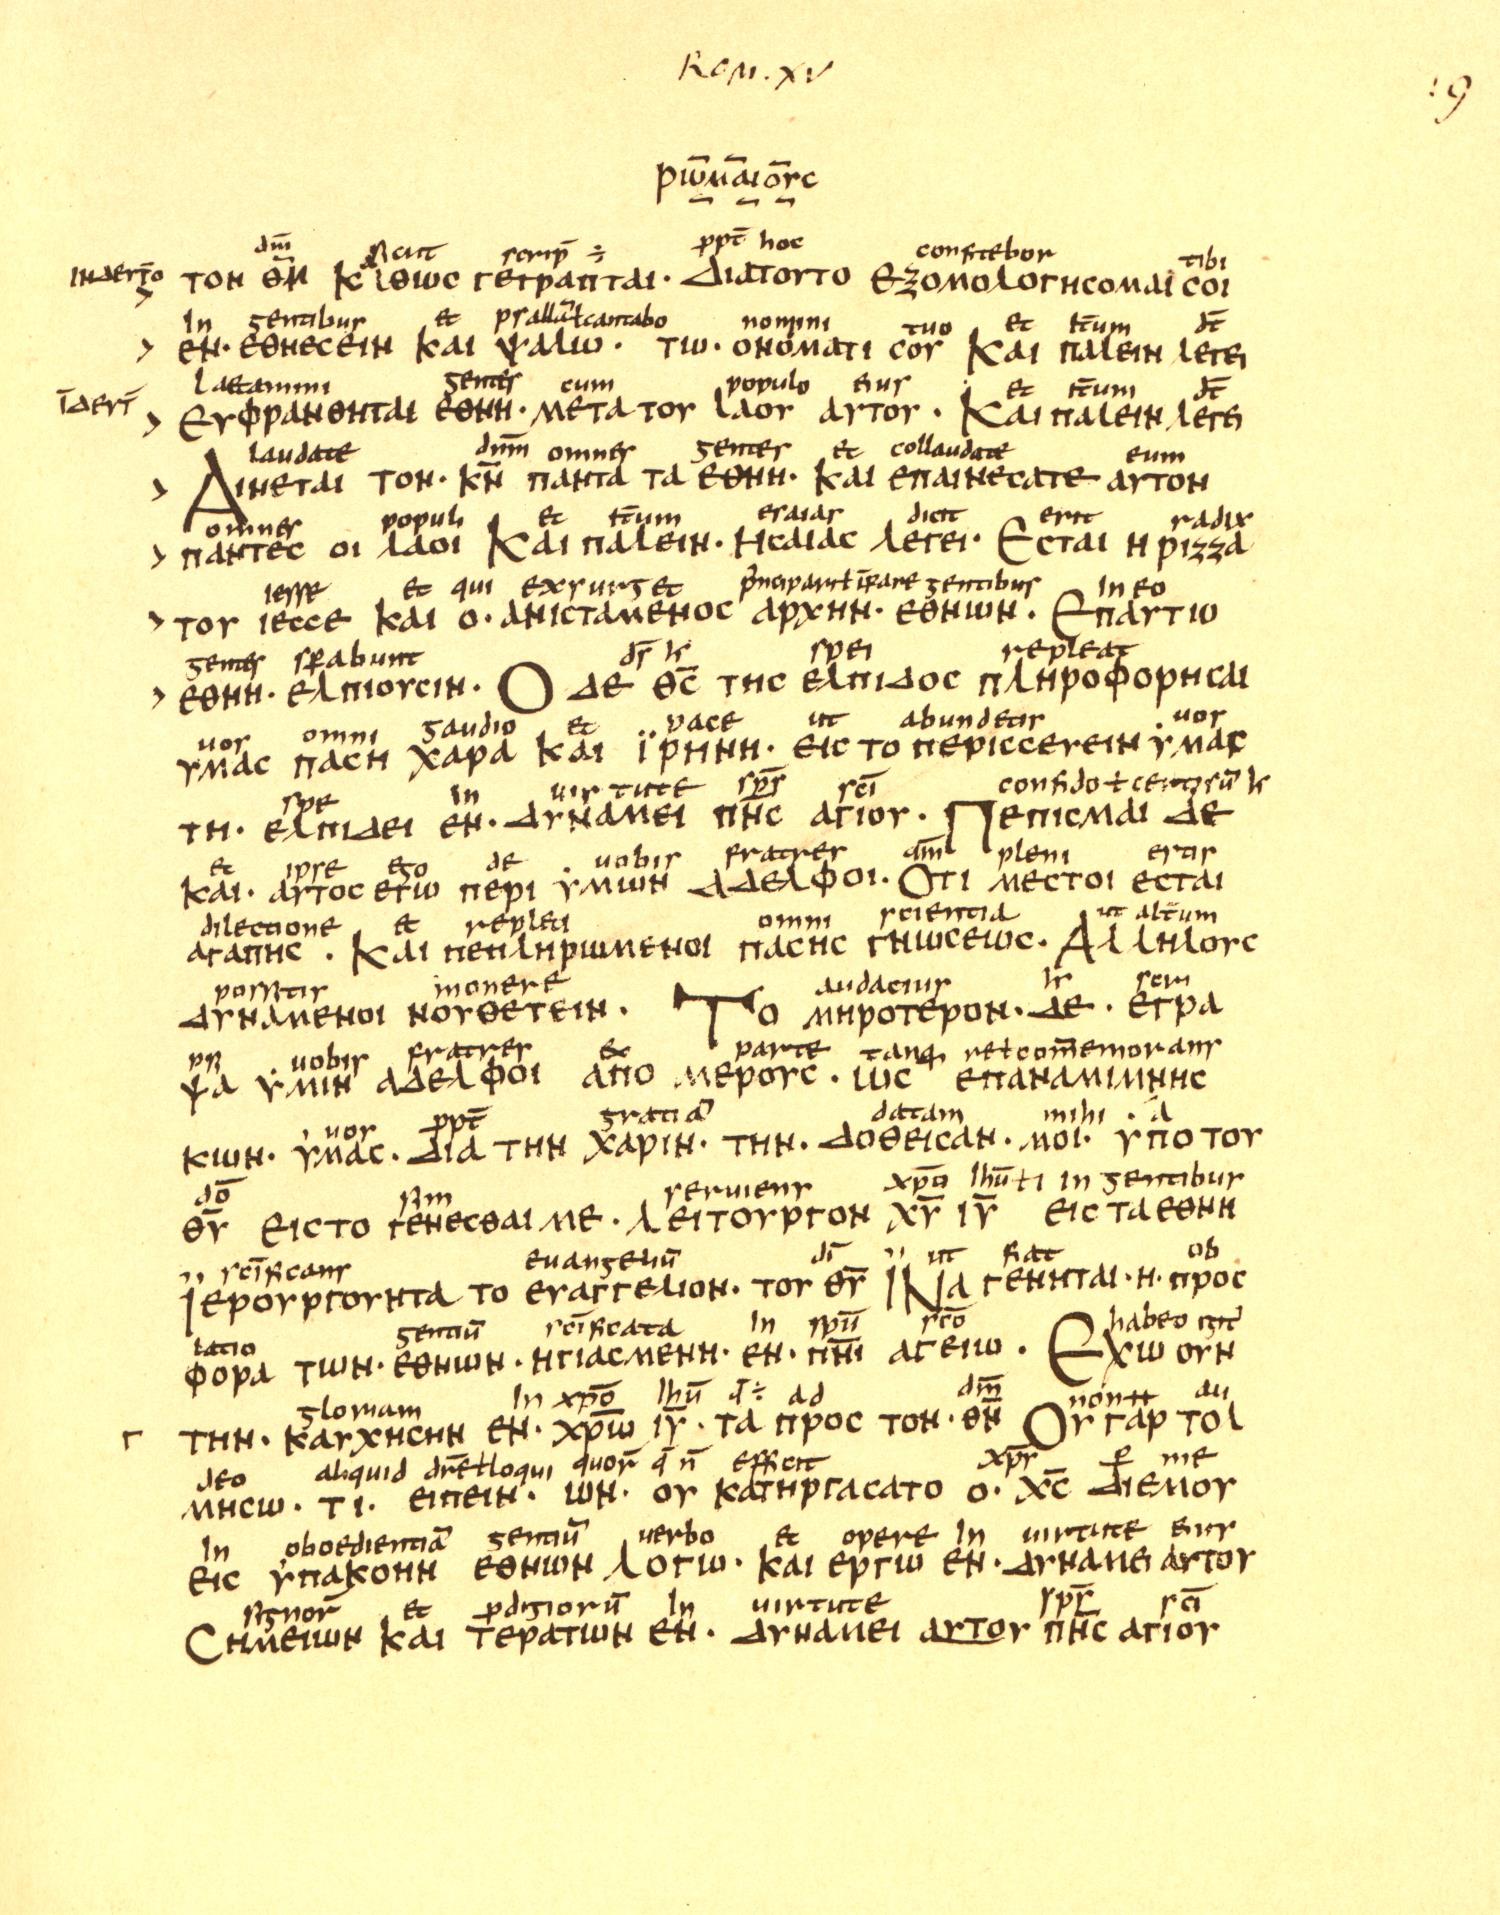 Rom. XV
19
ρωμαιους
dm̄ sicut scrip̄ ÷ ꝓpt̄ hoc confitebor tibi
τον θ̅ν̅ Κ ιθως γεγραπται· Διατουτο εξομολογησομαι σοι
In gentibus et psallā ł cantabo nomini tuo et it̄um dt̄
> εν· εθνεσειν και ψαλιω· τω· ονοματι σου Και παλειν λεγει
Laetamini gentes cum populo eius et it̄um dt̄
> Ευφρανθηται εθνη· μετα του λαου αυτου· Και παλειν λεγει
laudate dnm̄ omnes gentes et collaudate eum
> Αινεται τον· κ̅ν̅ παντα τα εθνη· και επαινεσατε αυτον
omnes populi et it̄um esaias dicit erit radix
> παντες οι λαοι Και παλειν· Ησαιας λεγει· Εσται η ριζζα
iesse et qui exsurget gentibus In eo
> του ιεσσε και ο· ανισταμενος αρχην· εθνων· Επαυτω
gentes sꝑabunt ds̄ spei repleat
> εθνη· ελπιουσιν· Ο δε θ̅ς̅ της ελπιδος πληροφορησαι
uos omni gaudio et pace ut abundetis uos
υμας παση χαρα και ϊρηνη· εις το περισσευειν υμας
spe In uirtute sp̄s sc̄i confido ł
τη· ελπιδει εν· δυναμει π̅ν̅ς αγιου· Πεπισμαι δε
et ipse ego de uobis fratres qm̄ pleni estis
και· αυτος εγω περι υμων αδελφοι· Οτι μεστοι εσται
dilectione et repleti omni scientia ut alt̄um
αγαπης· Και πεπληρωμενοι πασης γνωσεως· Αλληλους
possitis monere
δυναμενοι νουθετειν·
audacius scri
Το μηροτερον· δε· εγρα
psi uobis fratres ex parte tanq̄
ψα υμιν αδελφοι απο μερους· ως επαναμιμνης
uos ꝓpt̄ gratiā datam mihi · a
κων· υμας· δια την χαριν· την· δοθεισαν· μοι· υπο του
dō sim seruiens xp̄o In gentibus
θ̅υ̅ εις το γενεσθαι με· λειτουργον χ̅υ̅ ι̅υ̅ εις τα εθνη
sc̄ificans euangeliū dī ut fiat ob
ϊερουργουντα το ευαγγελιον· του θ̅υ̅ ϊΝα γενηται· η· προς
latio gentiū sc̄ificata In sp̄u sc̄o habeo igit̄
φορα των· εθνων· ηγιασμενη· εν· π̅ν̅ι αγειω· Εχω ουν
gloriam In xp̄o Ihū q̄÷ ad dm̄ au
Γ την· καυχησην εν· χ̅ρ̅ω ι̅υ̅· τα προς τον· θ̅ν̅ Ου γαρ τολ
deo aliquid loqui quor̄ q̄ n̄ efficit xp̄s ꝑ me
μησω· τι· ειπειν· ων· ου κατηργασατο ο· χ̅ς̅ διεμου
In oboedientiā gentiū uerbo et opere In uirtute eius
εις υπακοην εθνων λογω· και εργω εν· δυναμει αυτου
signor̄ et ꝓdigiorū In uirtute sp̄s sc̄i
Σημειων και τερατων εν· δυναμει αυτου π̅ν̅ς αγιου